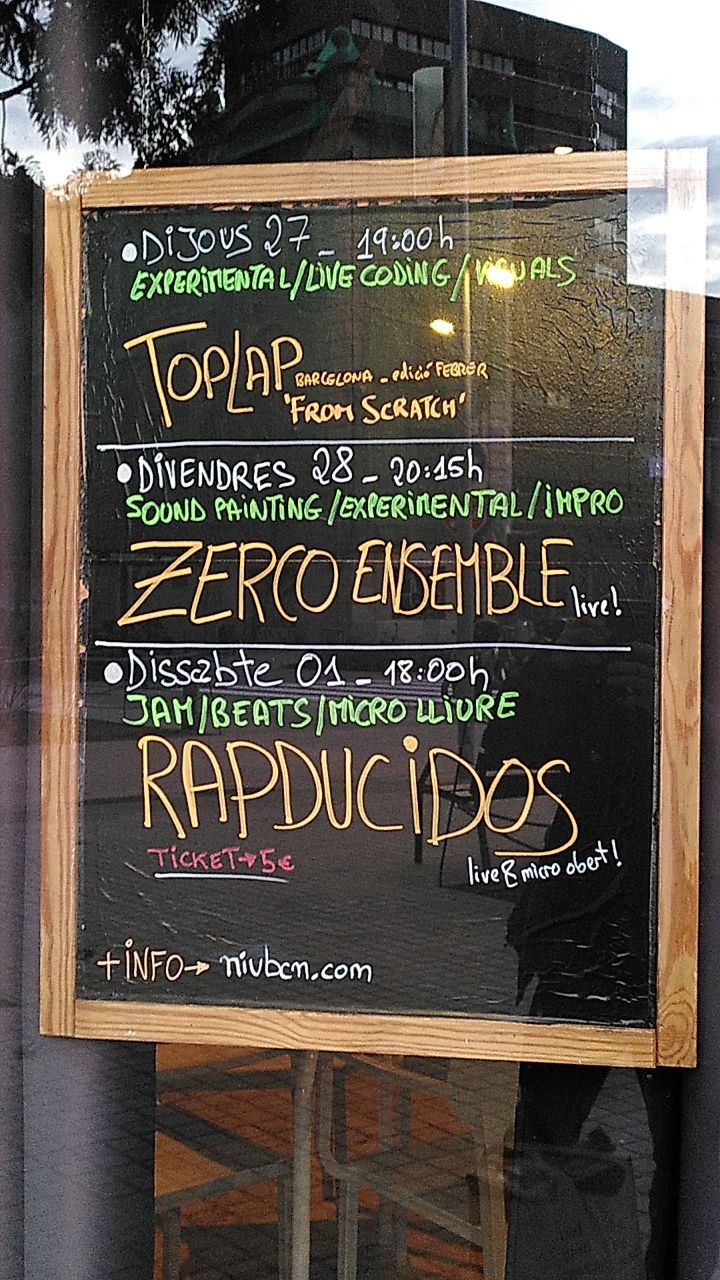 • DiJOUS 27 _ 19:00h
EXPERIMENTAL/LIVE CODING/VISUALS
TOPLAP BARCELONA _ edició FEBRER
"FROM SCRATCH"
• DiVENDRES 28 _ 20:15h
SOUND PAiNTiNG/EXPERIMENTAL/iMPRO
ZERCO ENSEMBLE live!
• Dissabte 01 _ 18:00h
JAM/BEATS/MiCRO LLiURE
RAPDUCiDOS
TiCKET→5€
live & micro obert!
+iNFO→ niubcn.com